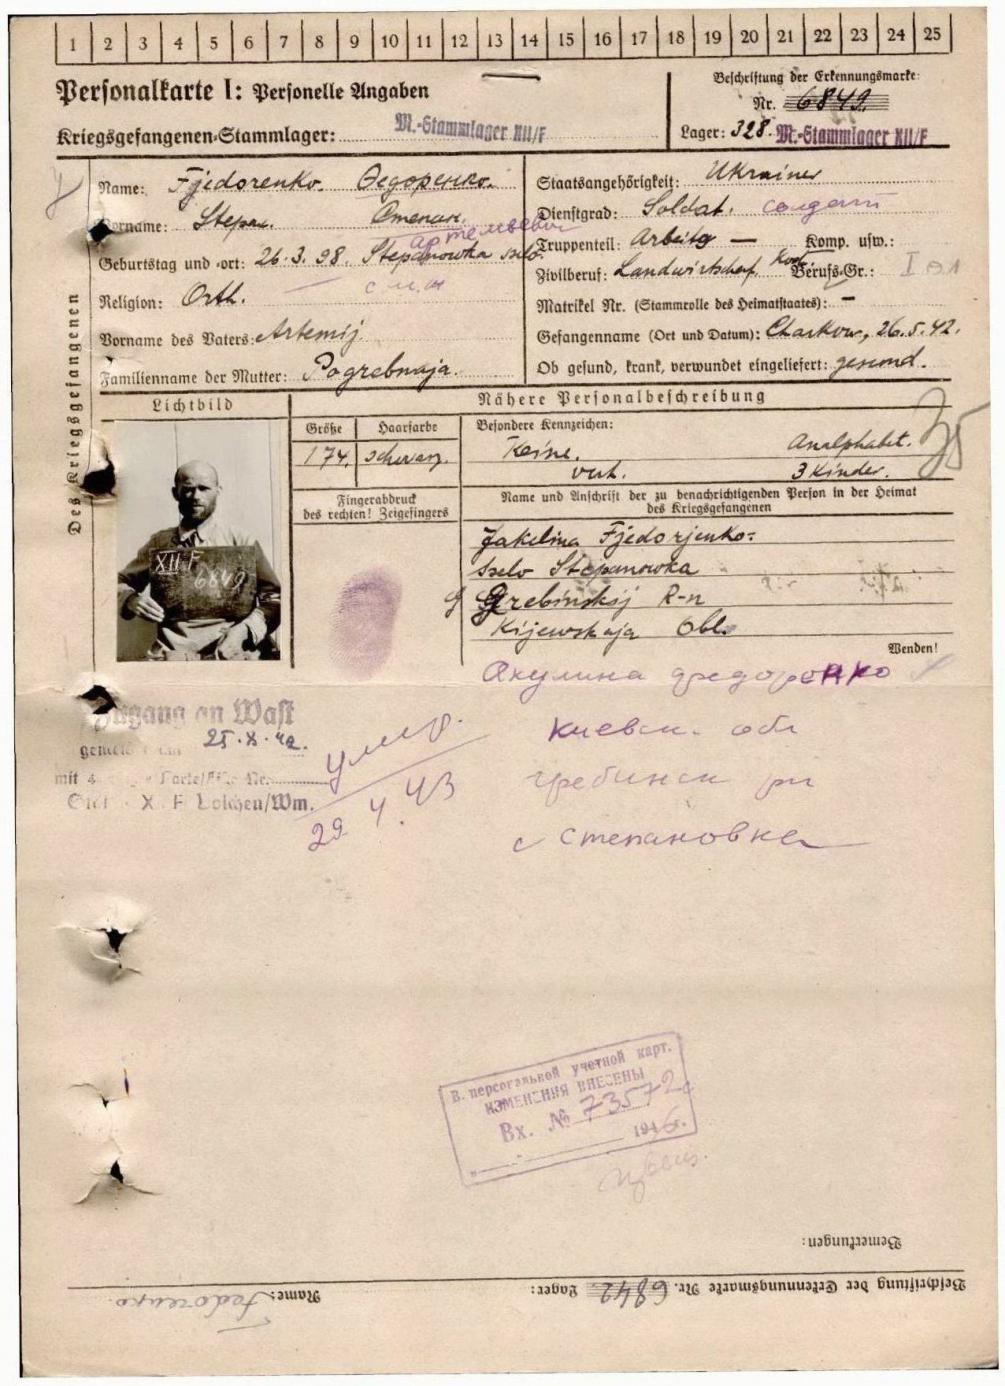 1 2 3 4 5 6 7 8 9 10 11 12 13 14 15 16 17 18 19 20 21 22 23 24 25
Personalkarte I: Personelle Angaben
Kriegsgefangenen-Stammlager: M.-Stammlager XII/F
Beschriftung der Erkennungsmarke:
Nr. 6849.
Lager: 328. M.-Stammlager XII/F
Des Kriegsgefangenen
Name: Fjedorenko. Федоренко.
Vorname: Stepan. Степан.
Артемьевич
Geburtstag und -ort: 26.3.98. Stepanowka selo.
Religion: Orth.
Vorname des Vaters: Artemij
Familienname der Mutter: Pogrebnaja.
Staatsangehörigkeit: Ukrainer
Dienstgrad: Soldat. солдат
Truppenteil: Arbeits — Komp. usw.:
Zivilberuf: Landwirtschaf. Berufs-Gr.: I
Matrikel Nr. (Stammrolle des Heimatstaates): —
Gefangenname (Ort und Datum): Charkow, 26.5.42.
Ob gesund, krank, verwundet eingeliefert: gesund.
Lichtbild
Nähere Personalbeschreibung
Größe Haarfarbe
174. schwarz.
Besondere Kennzeichen:
Keine. Analphabet.
verh. 3 Kinder.
Fingerabdruck
des rechten! Zeigefingers
Name und Anschrift der zu benachrichtigenden Person in der Heimat
des Kriegsgefangenen
Jakelina Fjedorjenko-
selo Stepanowka
Grebinskij R-n
Kijewskaja Obl.
Wenden!
XII F
6849
Акулина федоренко
киевск. обл
гребинск рн
с степановка
Zugang an Wast
25.X.42.
mit
XII F Bolchen/Wm.
умер.
29 4. 43
В персональной учетной карт.
ИЗМЕНЕНИЯ ВНЕСЕНЫ
Вх. № 73572
1946.
Bemerkungen:
Beschriftung der Erkennungsmarke Nr. 6849 Lager:
Name: Fedorenko